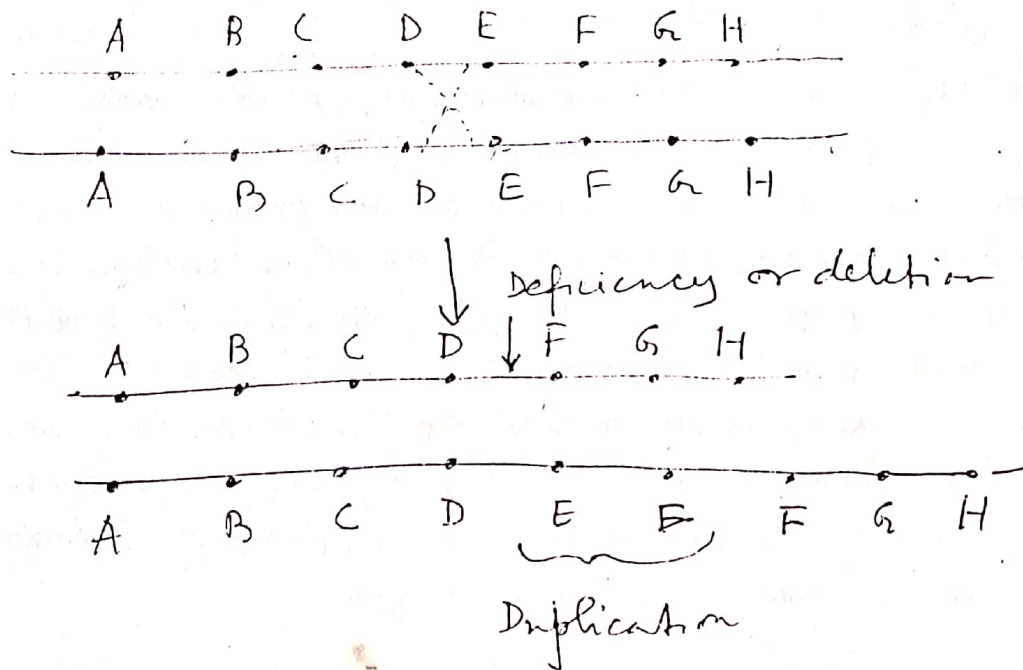 A B C D E F G H
A B C D E F G H
Deficiency or deletion
A B C D F G H
A B C D E E F G H
Duplication